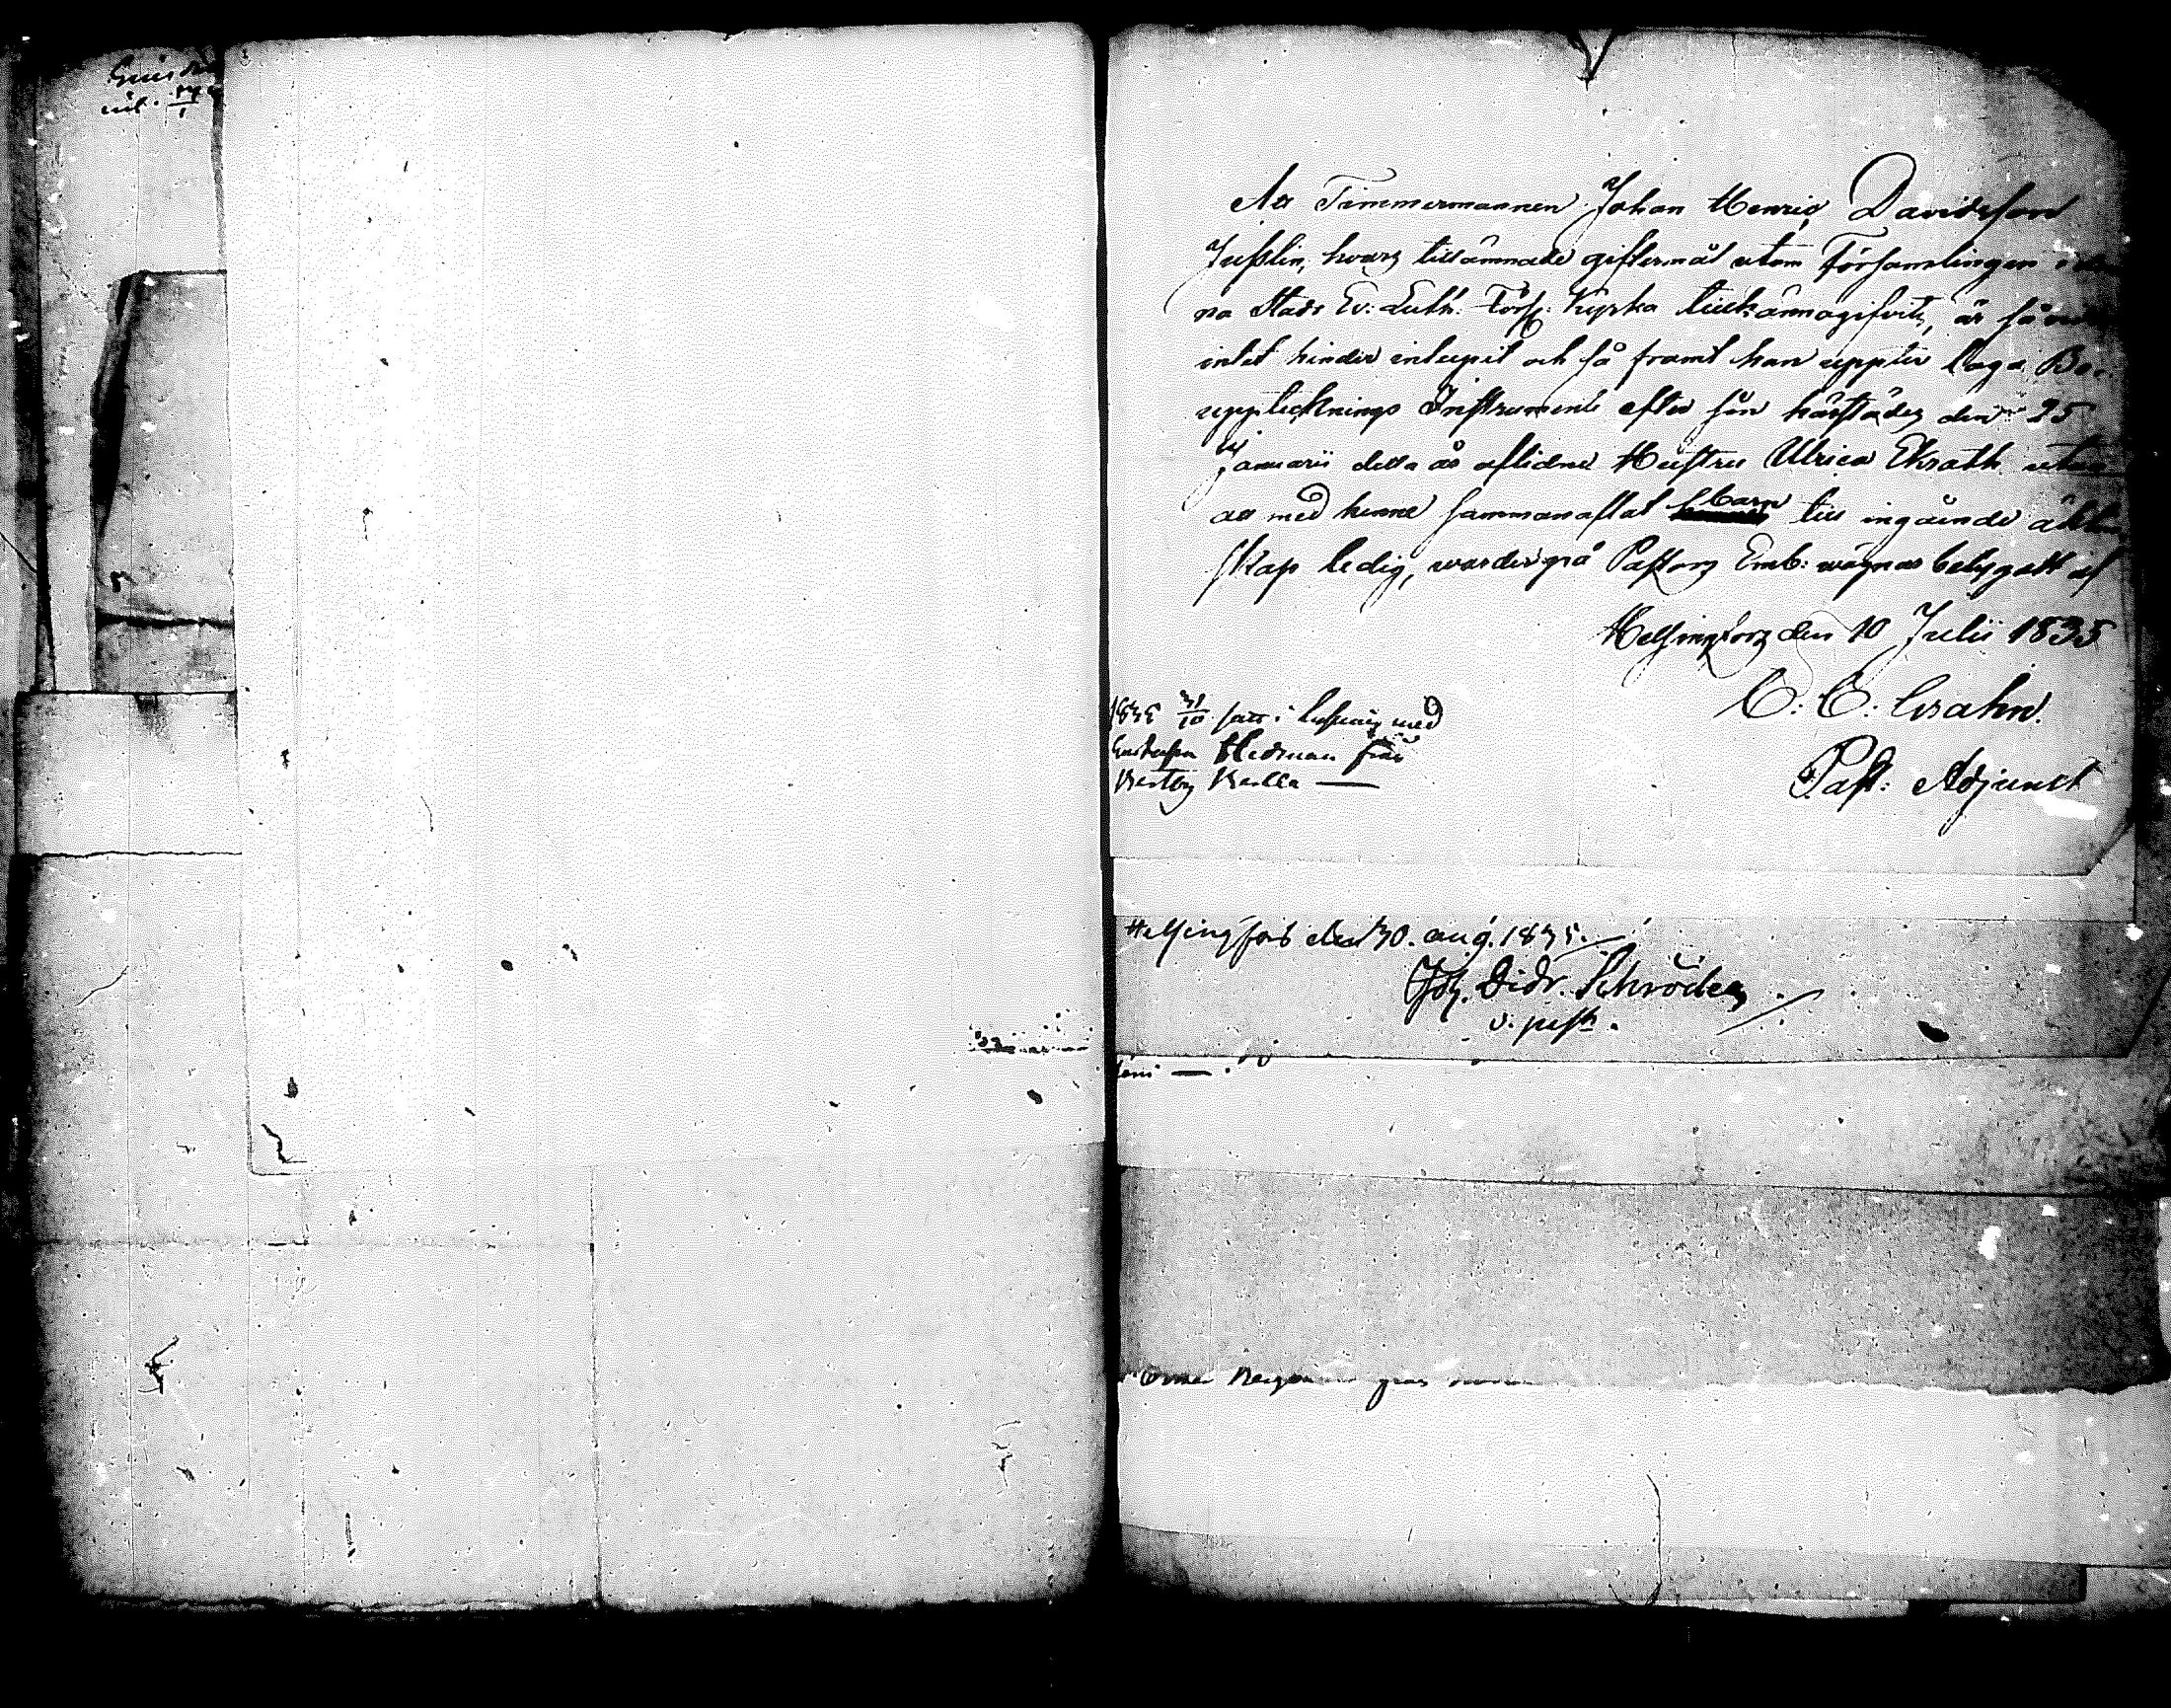 Att Timmermannen Johan Henric Davidsson
Jusslin, hvars tillämnade giftermål utom Församlingen i
na Stads Ev: Luth: Förs: Kyrka tillkännagifvits, är
intet hinder inlupit och så framt han uppter laga
uppteknings Instrument efter sin härstädes den 25
Januarii detta år aflidne Hustru Ulrica Ekrath utan
att med henne sammanaflat barn till ingående äkten
skap ledig, warder på Pastors Emb: wägnar betygatt af
Helsingfors den 10 Julii 1835
C: C: Crahn.
Past: Adjunct
1835 31/10 med
Hedman från
Helsingfors den 30. aug. 1835.
Joh. Didr. Schröder
v. past.